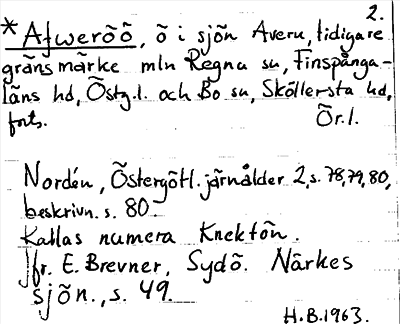 2.
* Afweröö, ö i sjön Avern, tidigare
gränsmärke mln Regna sn, Finspånga-
läns hd, Östg.l. och Bo sn, Sköllersta hd,
forts. Ör.l.
Nordén, Östergötl. järnålder 2, s. 78, 79, 80,
beskrivn. s. 80
Kallas numera Knektön.
Jfr. E. Brevner, Sydö. Närkes
sjön., s. 49.
H.B. 1963.